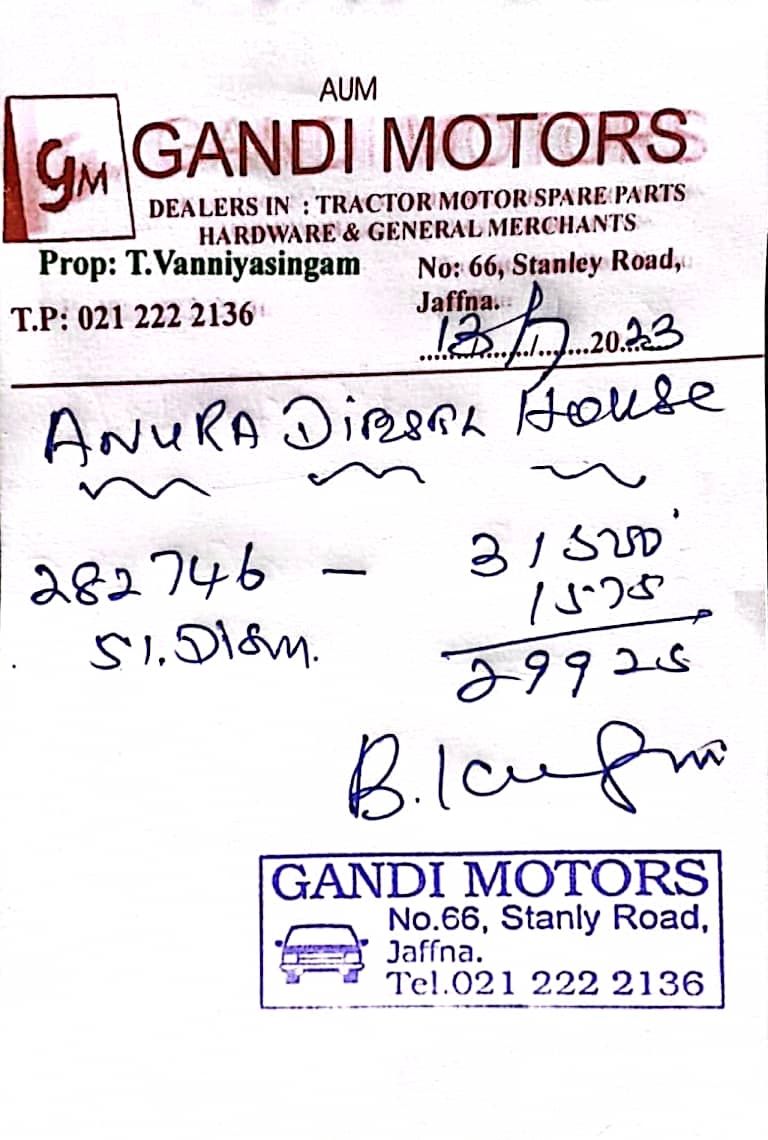 AUM
GM GANDI MOTORS
DEALERS IN : TRACTOR MOTOR SPARE PARTS
HARDWARE & GENERAL MERCHANTS
Prop: T.Vanniyasingam No: 66, Stanley Road,
T.P: 021 222 2136 Jaffna.
13/7 2023
ANURA DIESEL House
282746 — 31500
5%. Dism. 1575
29925
B.
GANDI MOTORS
No.66, Stanly Road,
Jaffna.
Tel.021 222 2136